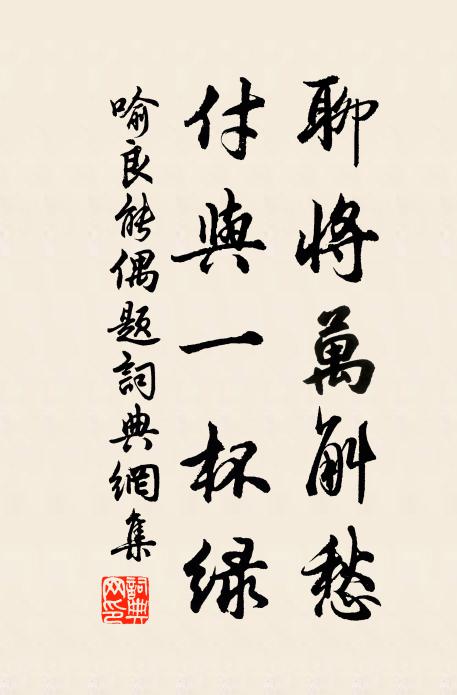 聊將萬斛愁
付與一杯绿
喻良能偶题詞典網集
詞典网印